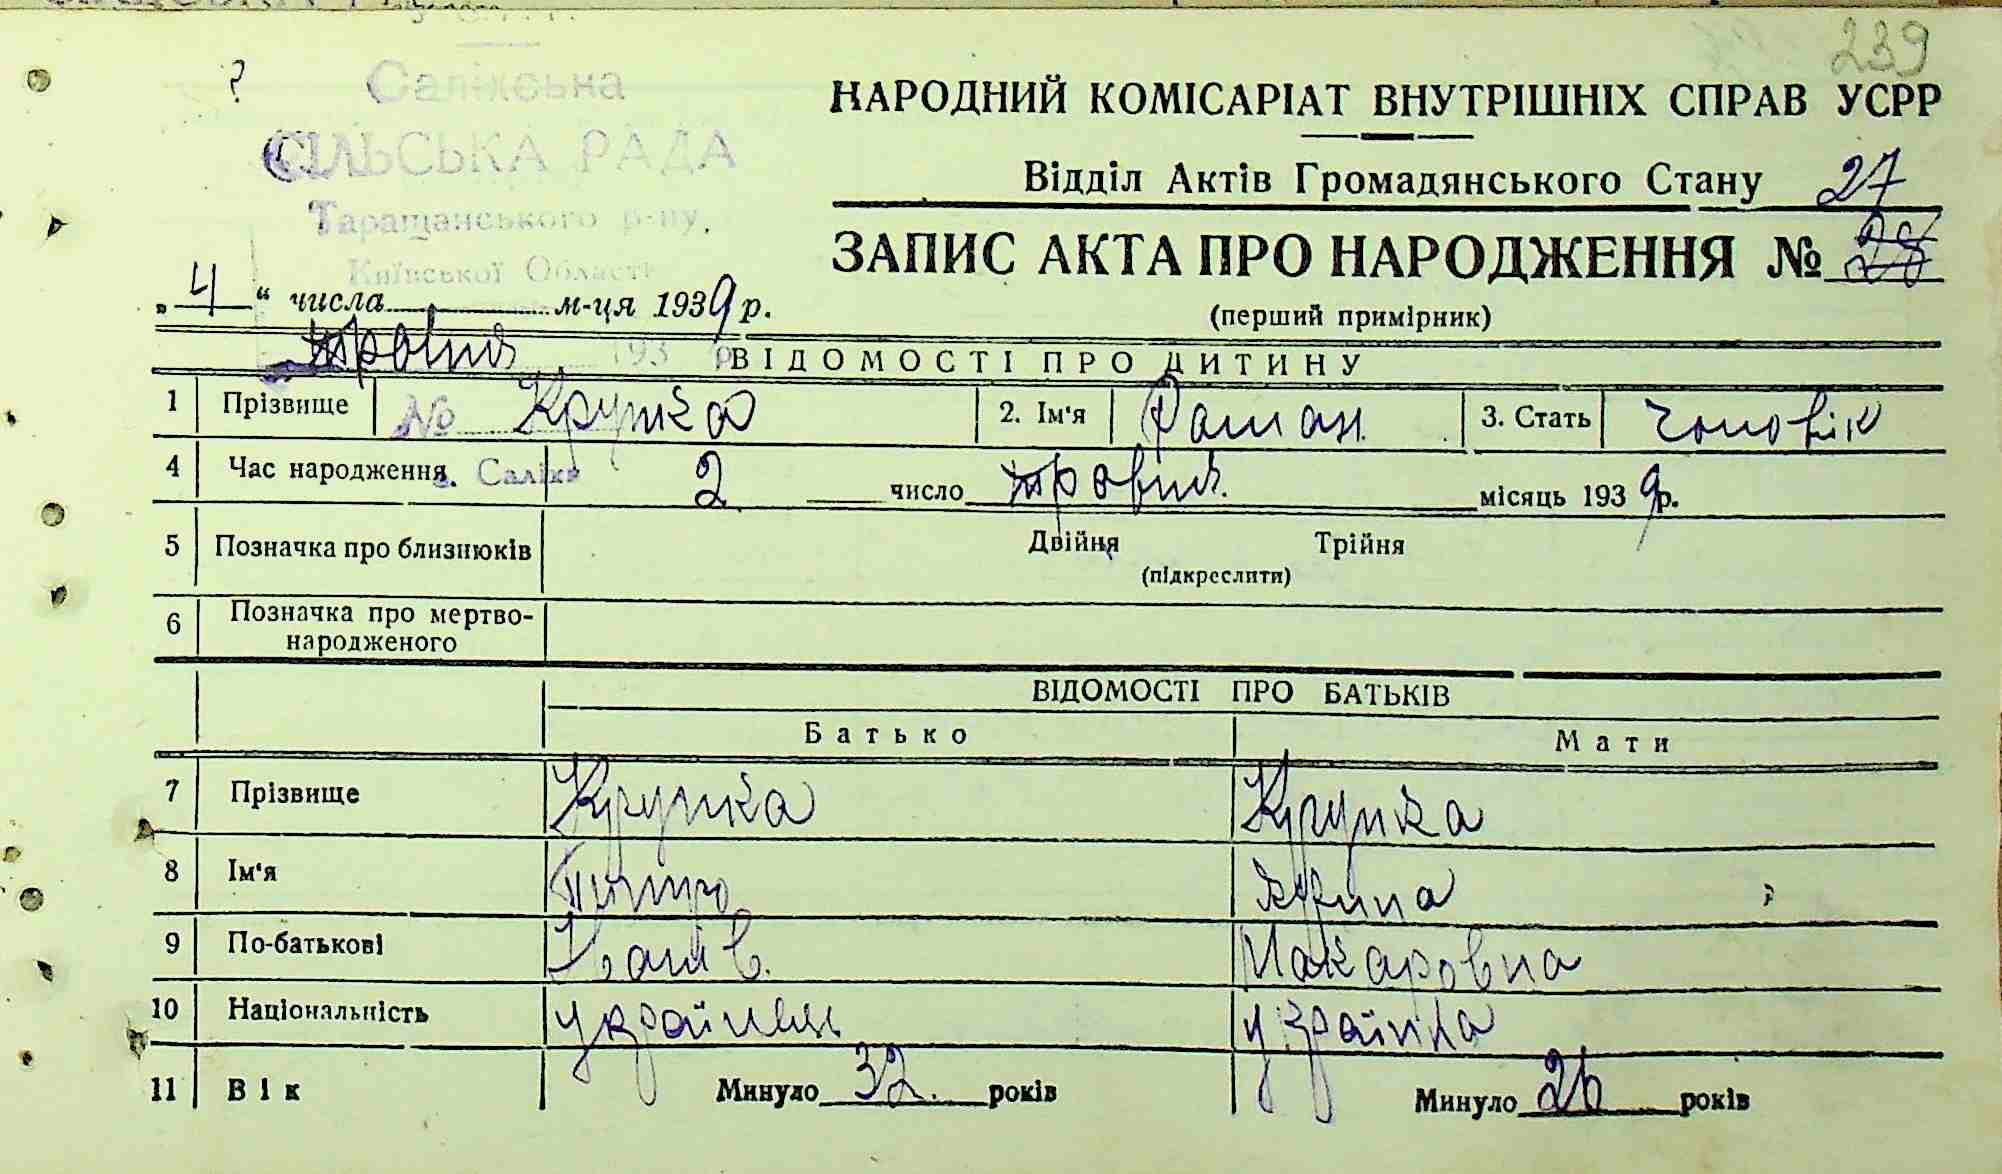 239
?
Салівська
СІЛЬСЬКА РАДА
Таращанського р-ну,
Київської Області
НАРОДНИЙ КОМІСАРІАТ ВНУТРІШНІХ СПРАВ УСРР
Відділ Актів Громадянського Стану 27
ЗАПИС АКТА ПРО НАРОДЖЕННЯ № 28
(перший примірник)
„4“ числа травня м-ця 1939 р.
193 р
ВІДОМОСТІ ПРО ДИТИНУ
1 Прізвище № Крупка 2. Ім'я Раман 3. Стать чоловік
4 Час народження с. Салів 2 число травня місяць 1939р.
5 Позначка про близнюків Двійня Трійня
(підкреслити)
6 Позначка про мертво-
народженого
ВІДОМОСТІ ПРО БАТЬКІВ
Батько Мати
7 Прізвище Крупка Крупка
8 Ім'я Питро Ярина
9 По-батькові Іванів. Макаровна
10 Національність українець українка
11 Вік Минуло 32. років Минуло 26 років